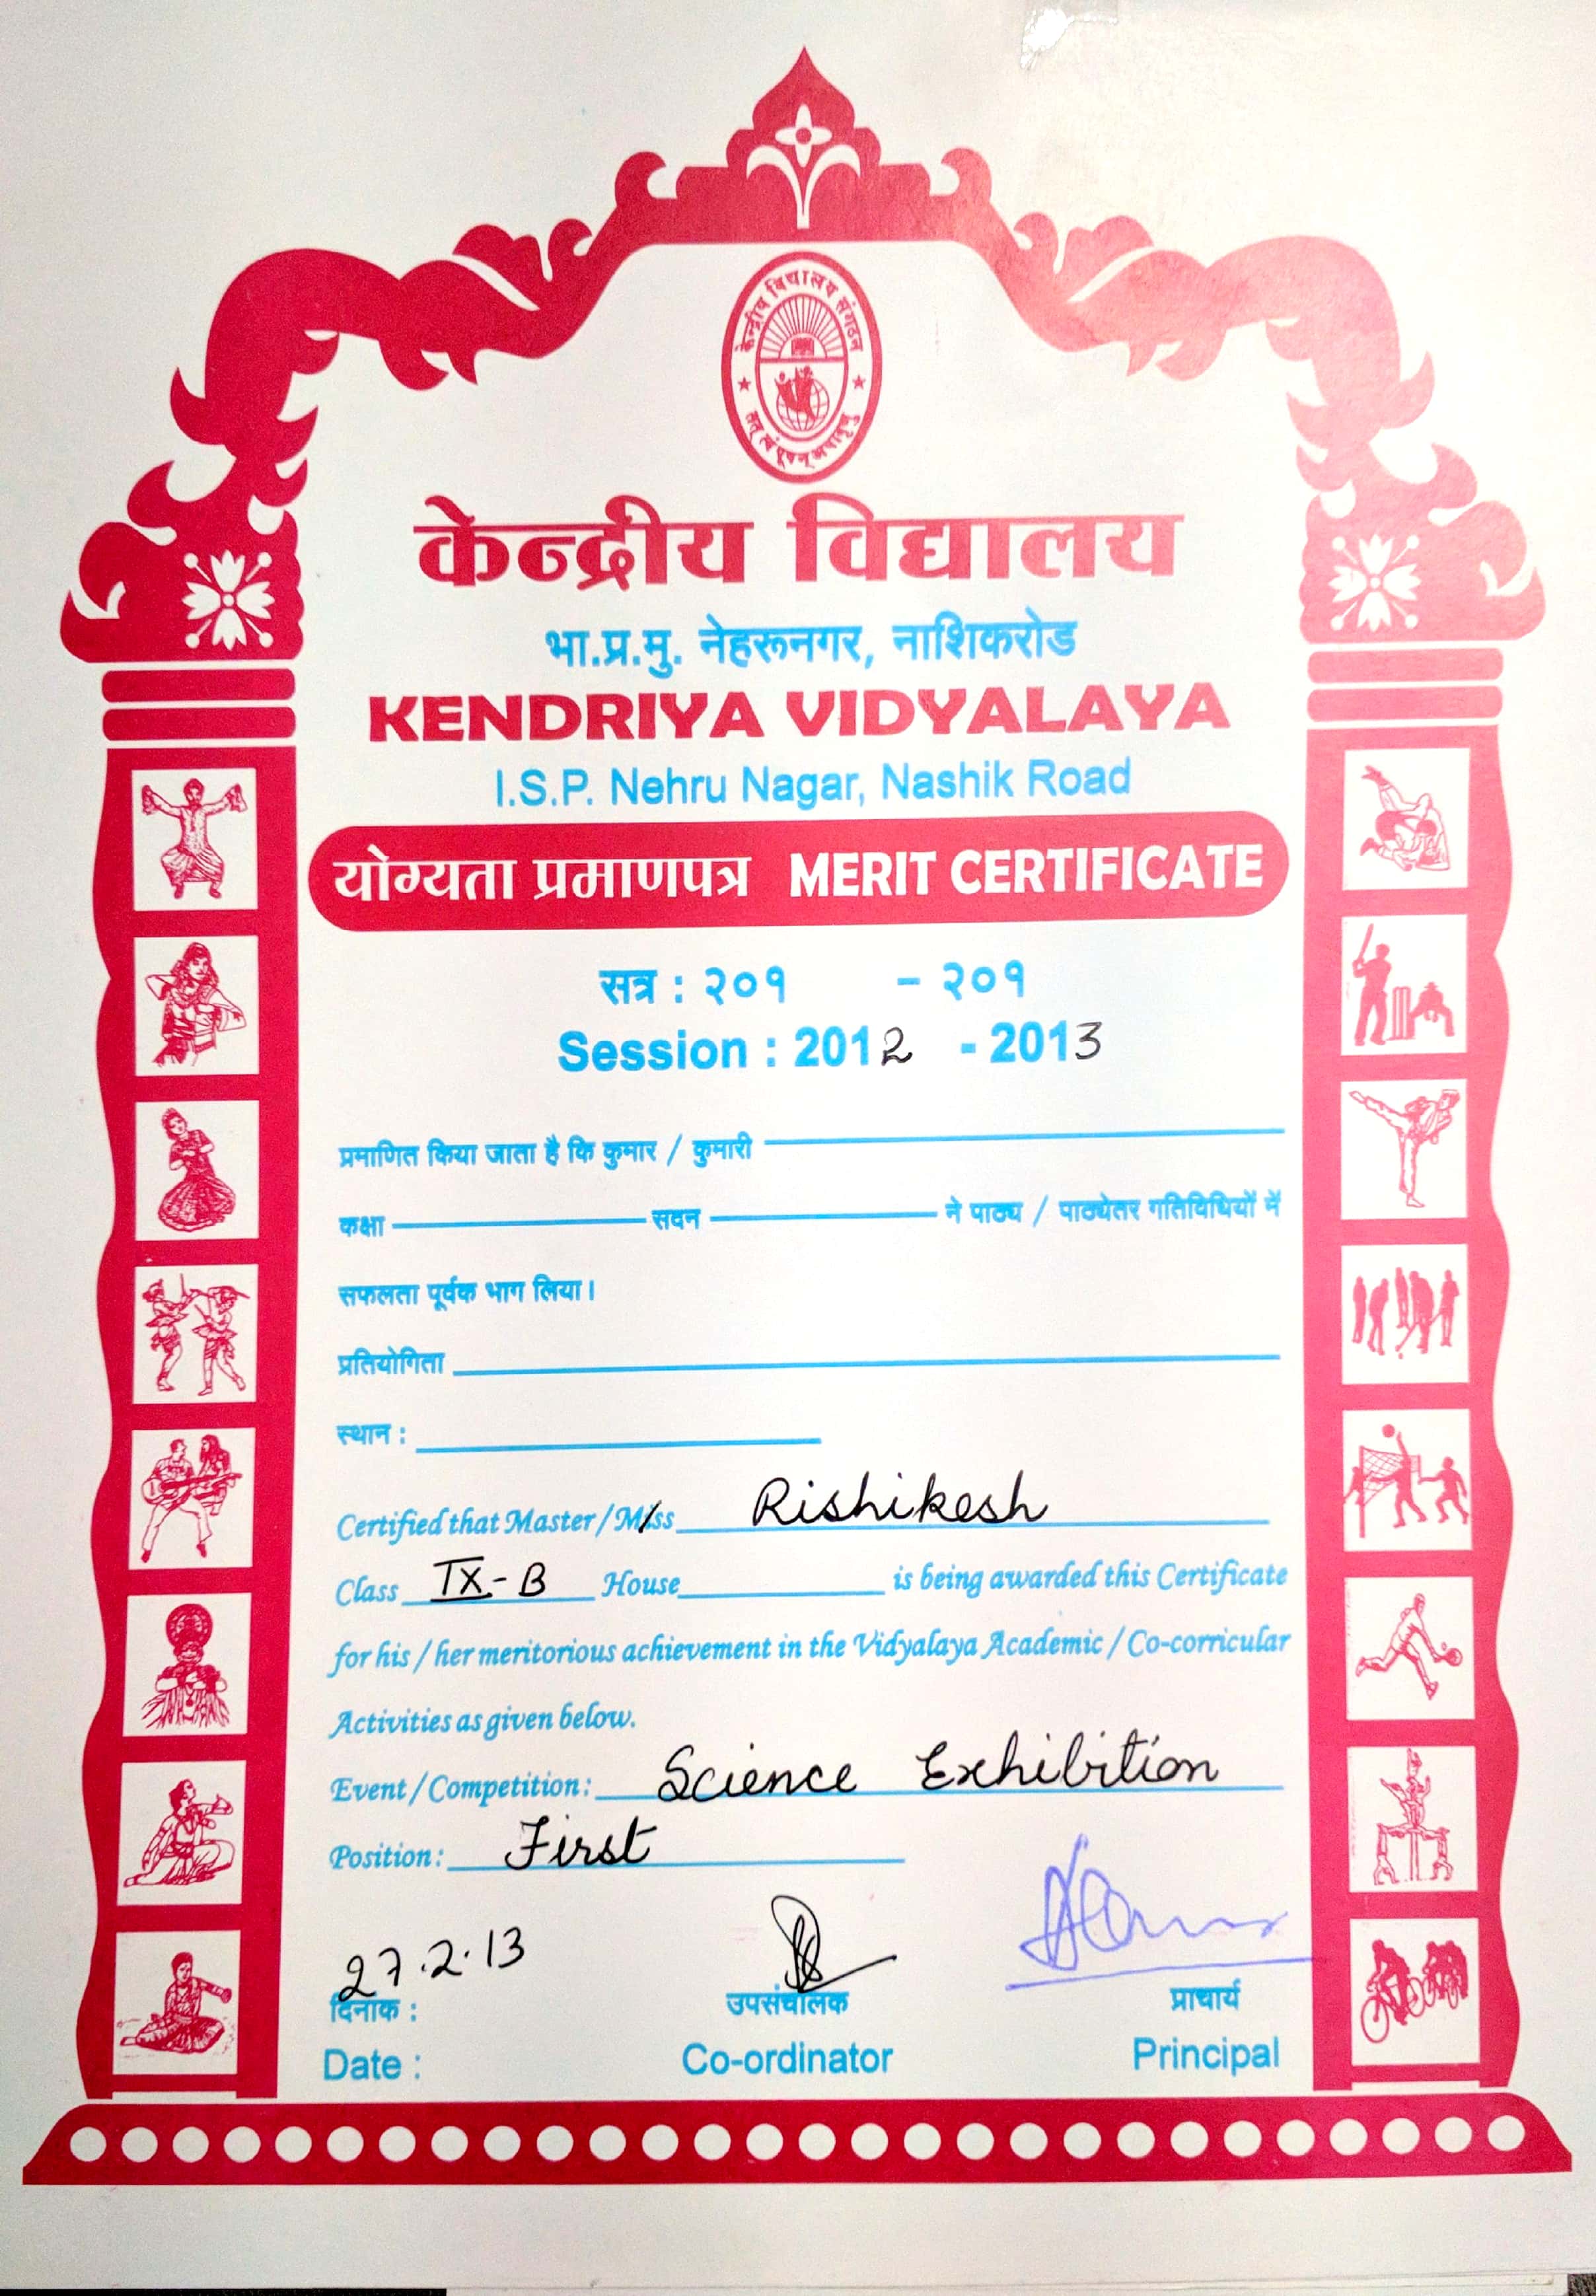 केन्द्रीय विद्यालय संगठन
तत् त्वं पूषन् अपावृणु
केन्द्रीय विद्यालय
भा.प्र.मु. नेहरूनगर, नाशिकरोड
KENDRIYA VIDYALAYA
I.S.P. Nehru Nagar, Nashik Road
योग्यता प्रमाणपत्र MERIT CERTIFICATE
सत्र : २०१ - २०१
Session : 2012 - 2013
प्रमाणित किया जाता है कि कुमार / कुमारी
कक्षा सदन ने पाठ्य / पाठ्येतर गतिविधियों में
सफलता पूर्वक भाग लिया।
प्रतियोगिता
स्थान :
Certified that Master / Miss Rishikesh
Class IX - B House is being awarded this Certificate
for his / her meritorious achievement in the Vidyalaya Academic / Co-corricular
Activities as given below.
Event / Competition: Science Exhibition
Position: First
27.2.13
दिनाक : उपसंचालक प्राचार्य
Date : Co-ordinator Principal